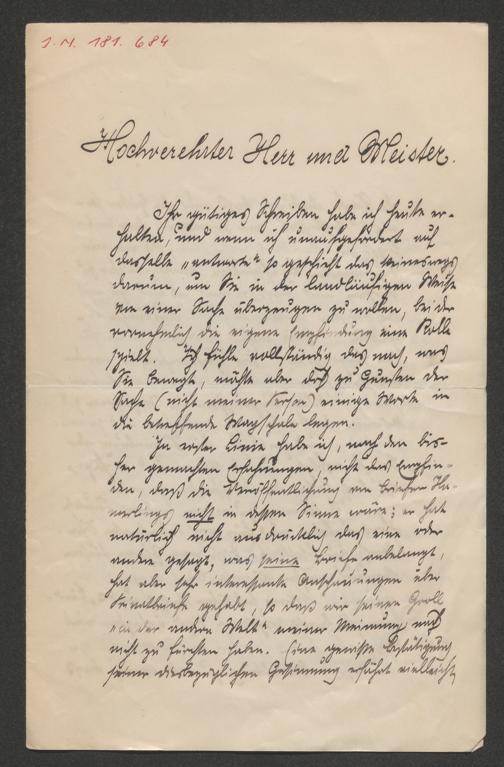 J. N. 181. 684
Hochverehrter Herr und Meister.
Ihr gütiges Schreiben habe ich heute er-
halten, und wenn ich unaufgefordert auf
dasselbe „antworte“ so geschieht das keineswegs
darum, um Sie in der landläufigen Weise
von einer Sache überzeugen zu wollen, bei der
vornehmlich die eigene Empfindung eine Rolle
spielt. Ich fühle vollständig das nach, was
Sie bewegte, möchte aber doch zu Gunsten der
Sache (nicht meiner Person) einige Worte in
die betreffende Wagschale legen.
In erster Linie habe ich, nach den bis-
her gemachten Erfahrungen, nicht das Empfin-
den, daß die Veröffentlichung von Briefen Ha-
merlings nicht in dessen Sinne wäre; er hat
natürlich nicht ausdrücklich das eine oder
andere gesagt, was seine Briefe anbelangt,
hat aber sehr interessante Anschauungen über
gehabt, so daß wir seinen Groll
„in der andern Welt“ meiner Meinung nach
nicht zu fürchten haben. Eine gewisse Bestätigung
seiner diesbezüglichen Gesinnung erfährt vielleicht